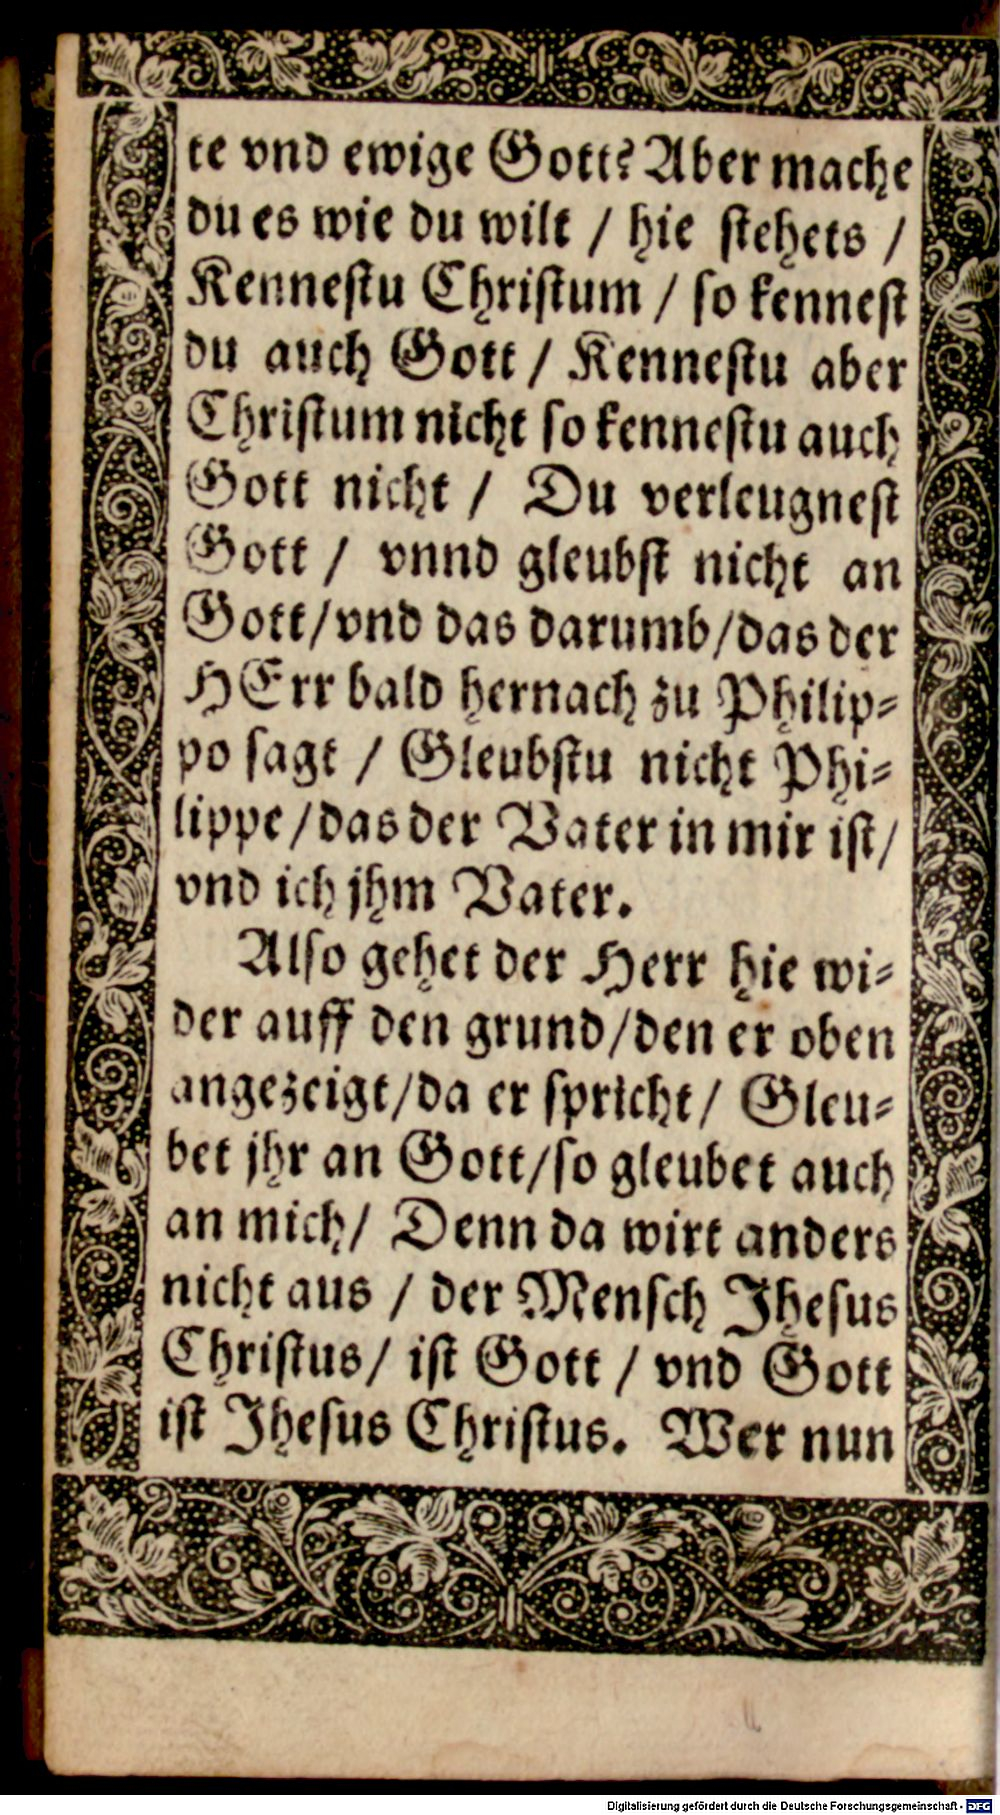 te vnd ewige Gott? Aber mache
du es wie du wilt / hie stehets /
Kennestu Christum / so kennest
du auch Gott / Kennestu aber
Christum nicht so kennestu auch
Gott nicht / Du verleugnest
Gott / vnnd gleubst nicht an
Gott/vnd das darumb/das der
HErr bald hernach zu Philip=
po sagt / Gleubstu nicht Phi=
lippe/das der Vater in mir ist/
vnd ich jhm Vater.
Also gehet der Herr hie wi=
der auff den grund/den er oben
angezeigt/da er spricht/ Gleu=
bet jhr an Gott/so gleubet auch
an mich/ Denn da wirt anders
nicht aus / der Mensch Jhesus
Christus/ ist Gott / vnd Gott
ist Jhesus Christus. Wer nun
Digitalisierung gefördert durch die Deutsche Forschungsgemeinschaft - DFG